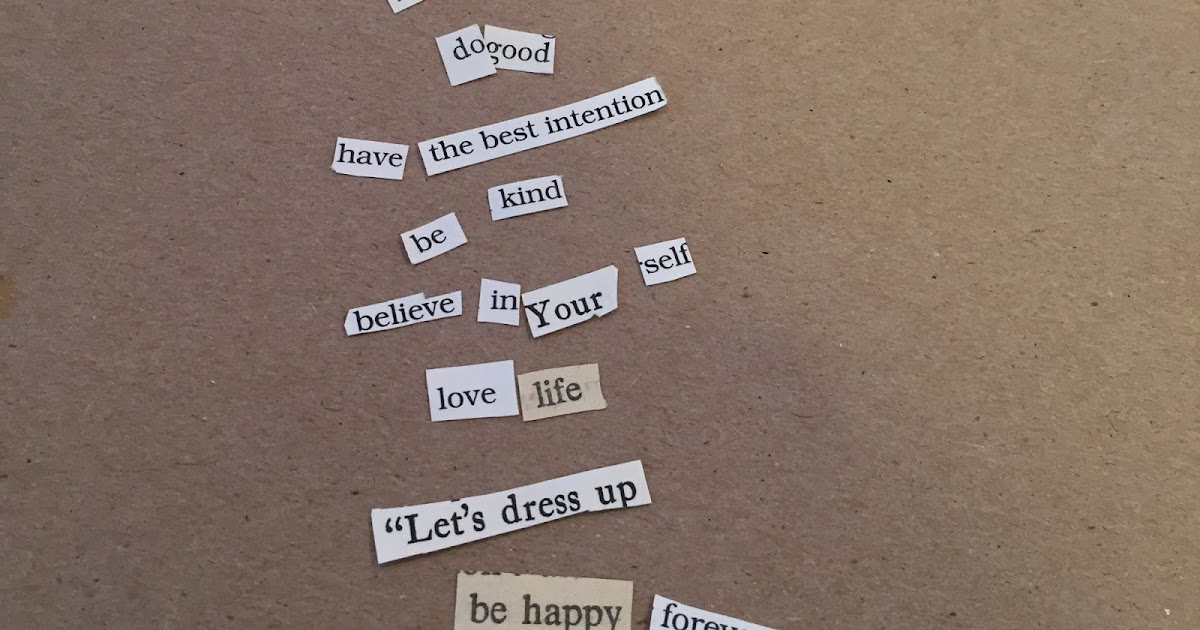 do good
have the best intention
be kind
believe in Your self
love life
“Let’s dress up
be happy